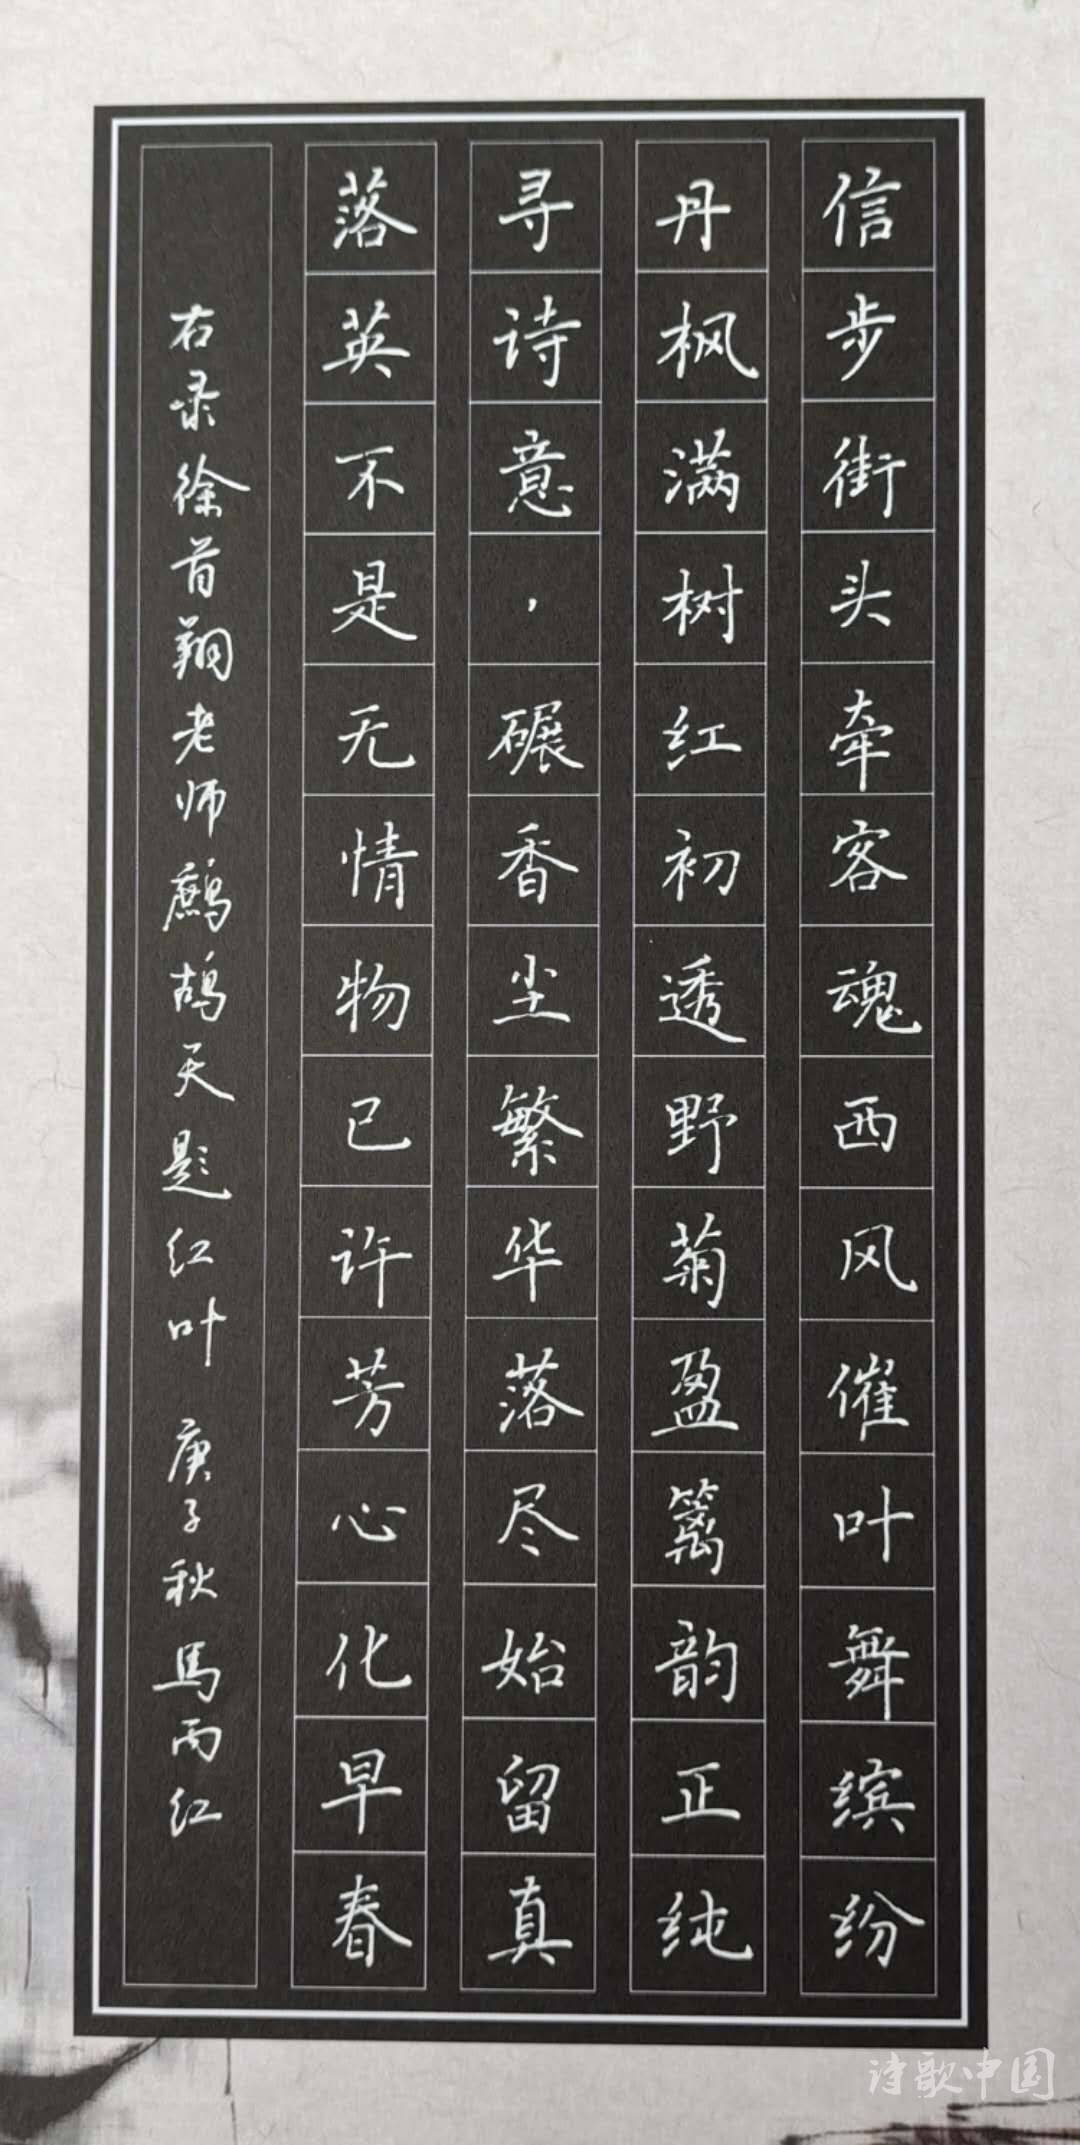 信步街头牵客魂西风催叶舞缤纷
丹枫满树红初透野菊盈篱韵正纯
寻诗意，碾香尘繁华落尽始留真
落英不是无情物已许芳心化早春
右录徐首翔老师鹧鸪天题红叶 庚子秋 馬丙红
诗歌中国